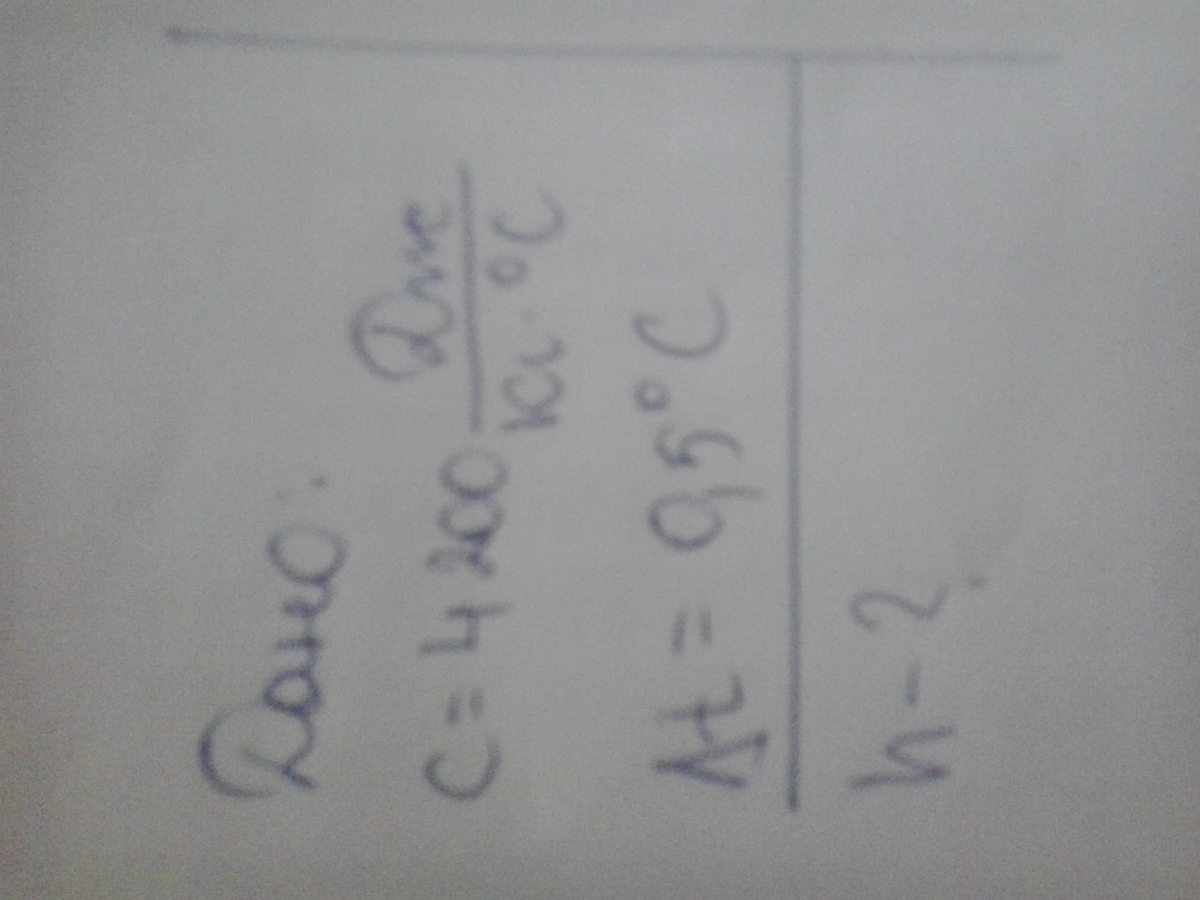 Дано:
C = 4200 Дж
кг · °C
Δt = 0,5 °C
h - ?